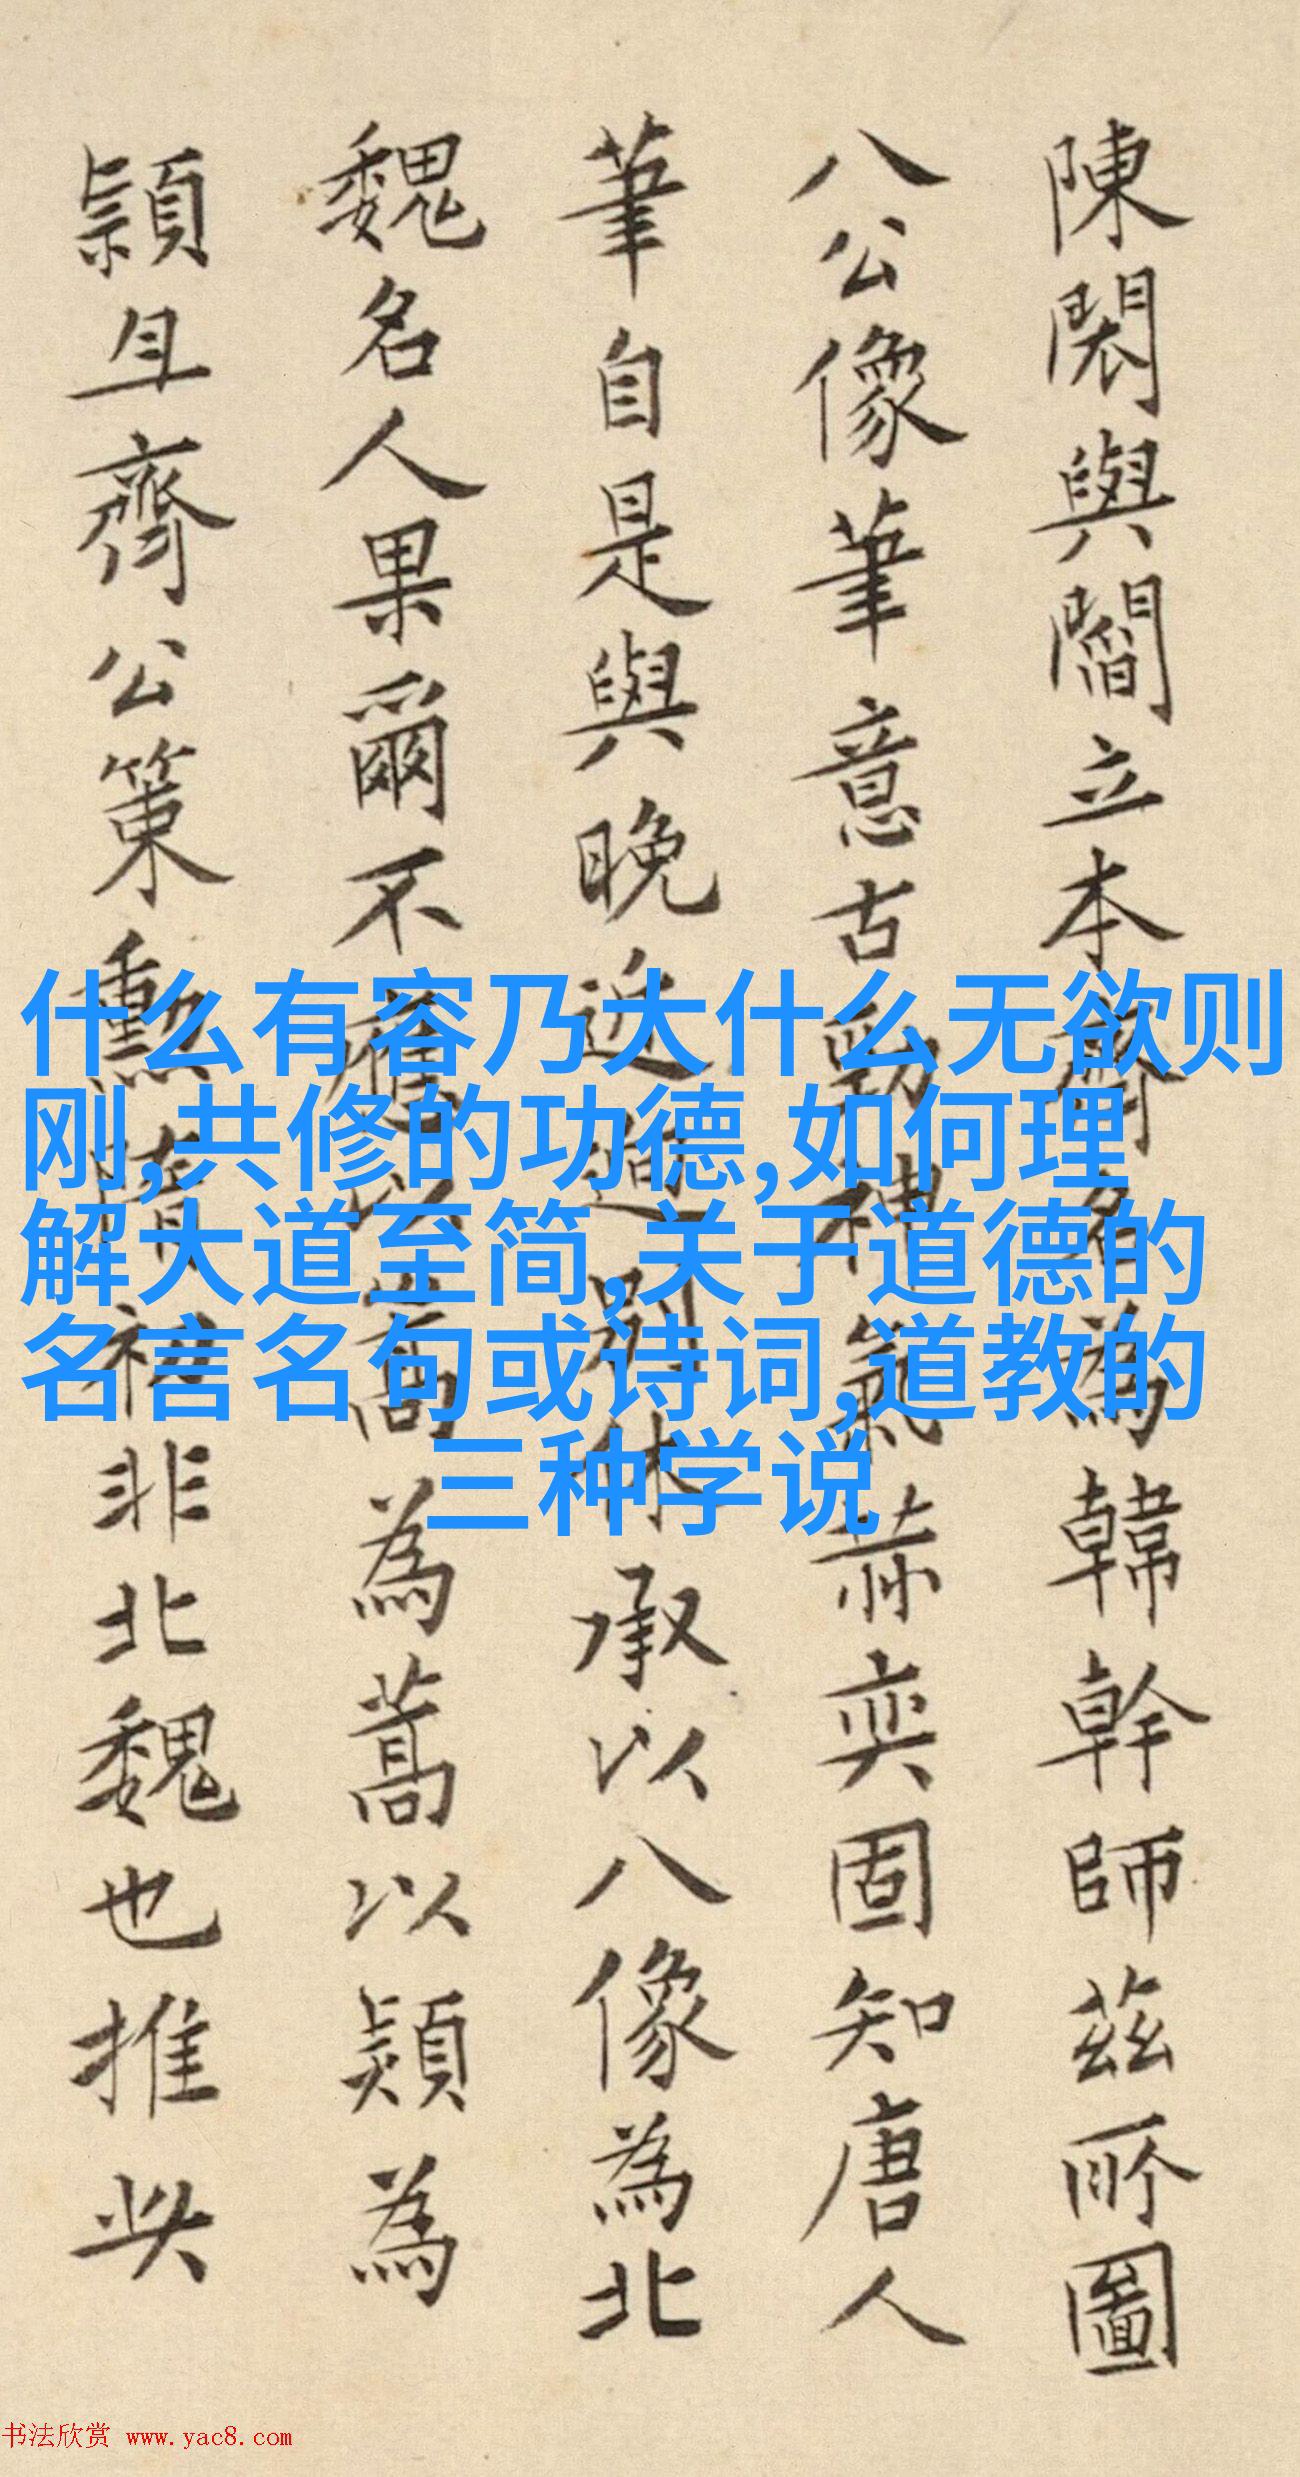 陳閎與閻立本齊名為韓幹師茲所圖
八公像筆意古勁神氣赫奕固知唐人
筆自是與晚近迥別休承以八像為北
魏名人果爾不應以嵩為蒿以熲為
頴且齊公策勳隋初非北魏也推
什么有容乃大什么无欲则
刚,共修的功德,如何理
解大道至简,关于道德的
名言名句或诗词,道教的
三种学说
书法欣赏 www.yac8.com